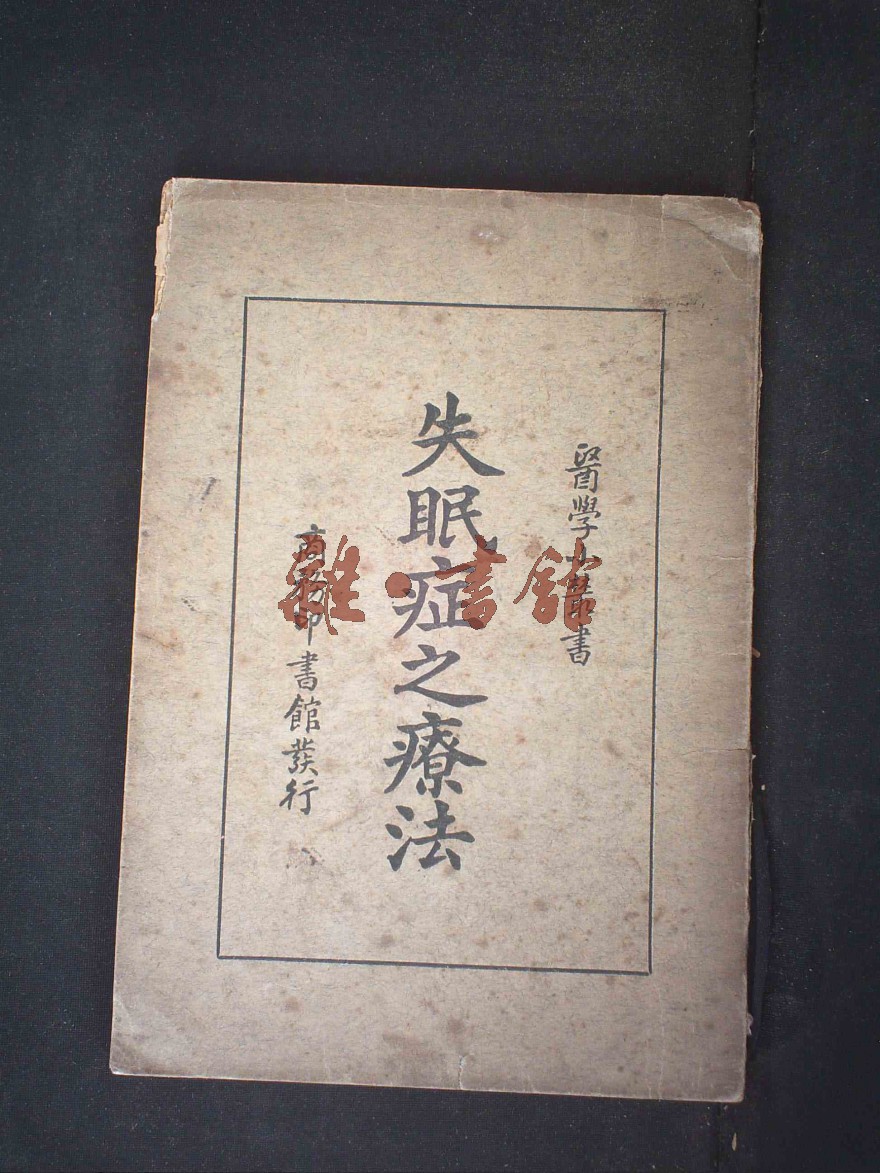 醫學小叢書
失眠症之療法
商務印書館發行
雜·書館